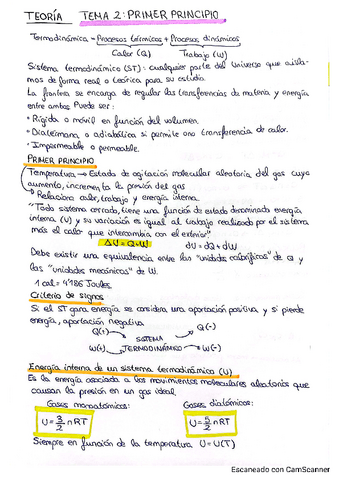 TEORÍA TEMA 2: PRIMER PRINCIPIO
Termodinámica = Procesos térmicos + Procesos dinámicos
Calor (Q) Trabajo (W)
Sistema termodinámico (ST): cualquier parte del Universo que aisla-
mos de forma real o teórica para su estudio.
La frontera se encarga de regular las transferencias de materia y energía
entre ambos. Puede ser:
• Rígida o móvil en función del volumen.
• Diatérmana o adiabática si permite o no transferencia de calor.
• Impermeable o permeable.
PRIMER PRINCIPIO
Temperatura → Estado de agitación molecular aleatoria del gas cuyo
aumento, incrementa la presión del gas
↳ Relaciona calor, trabajo y energía interna.
"Todo sistema cerrado, tiene una función de estado denominada energía
interna (U) y su variación es igual al trabajo realizado por el sistema
más el calor que intercambia con el exterior"
ΔU = Q + W dU = dQ + dW
Debe existir una equivalencia entre las "unidades caloríficas" de Q y
las "unidades mecánicas" de W.
1 cal = 4'186 Joules
Criterio de signos
Si el ST gana energía se considera una aportación positiva, y si pierde
energía, aportación negativa
Q(+) Q(-)
SISTEMA
W(+) TERMODINÁMICO W(-)
Energía interna de un sistema termodinámico (U)
Es la energía asociada a los movimientos moleculares aleatorios que
causan la presión en un gas ideal.
Gases monoatómicos: Gases diatómicos:
U = 3/2 nRT U = 5/2 nRT
Siempre en función de la temperatura U = U(T)
Escaneado con CamScanner